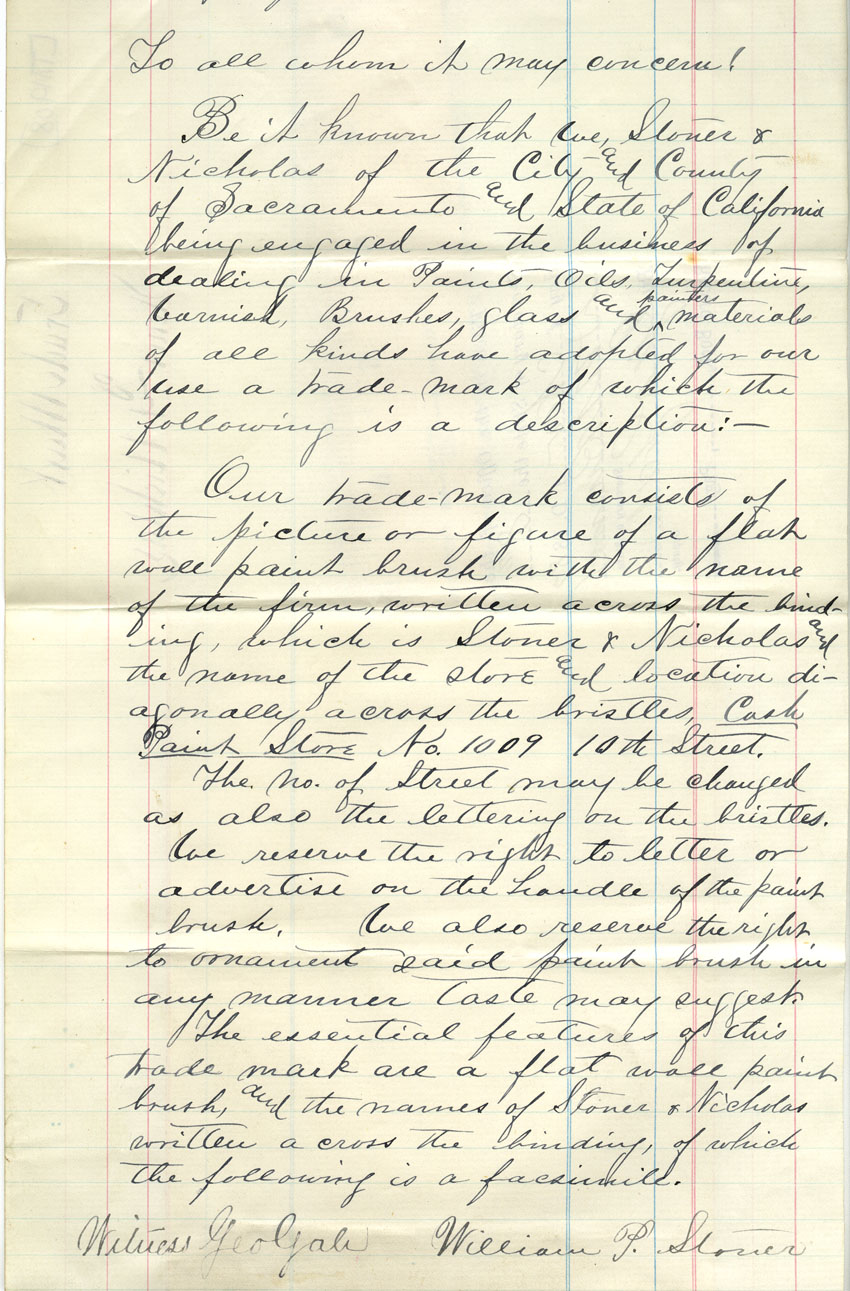 To all whom it may concern!
Be it known that We, Stoner &
Nicholas of the City and County
of Sacramento and State of California
being engaged in the business of
dealing in Paints, Oils, Turpentine,
Varnish, Brushes, glass and painters materials
of all kinds have adopted for our
use a trade-mark of which the
following is a description:—
Our trade-mark consists of
the picture or figure of a flat
wall paint brush with the name
of the firm, written across the bind-
ing, which is Stoner & Nicholas and
the name of the store and location di-
agonally across the bristles, Cash
Paint Store No. 1009 10th Street.
The no. of Street may be changed
as also the lettering on the bristles.
We reserve the right to letter or
advertise on the handle of the paint
brush. We also reserve the right
to ornament said paint brush in
any manner taste may suggest.
The essential features of this
trade mark are a flat wall paint
brush, and the names of Stoner & Nicholas
written across the binding, of which
the following is a facsimile.
Witness Geo William P. Stoner